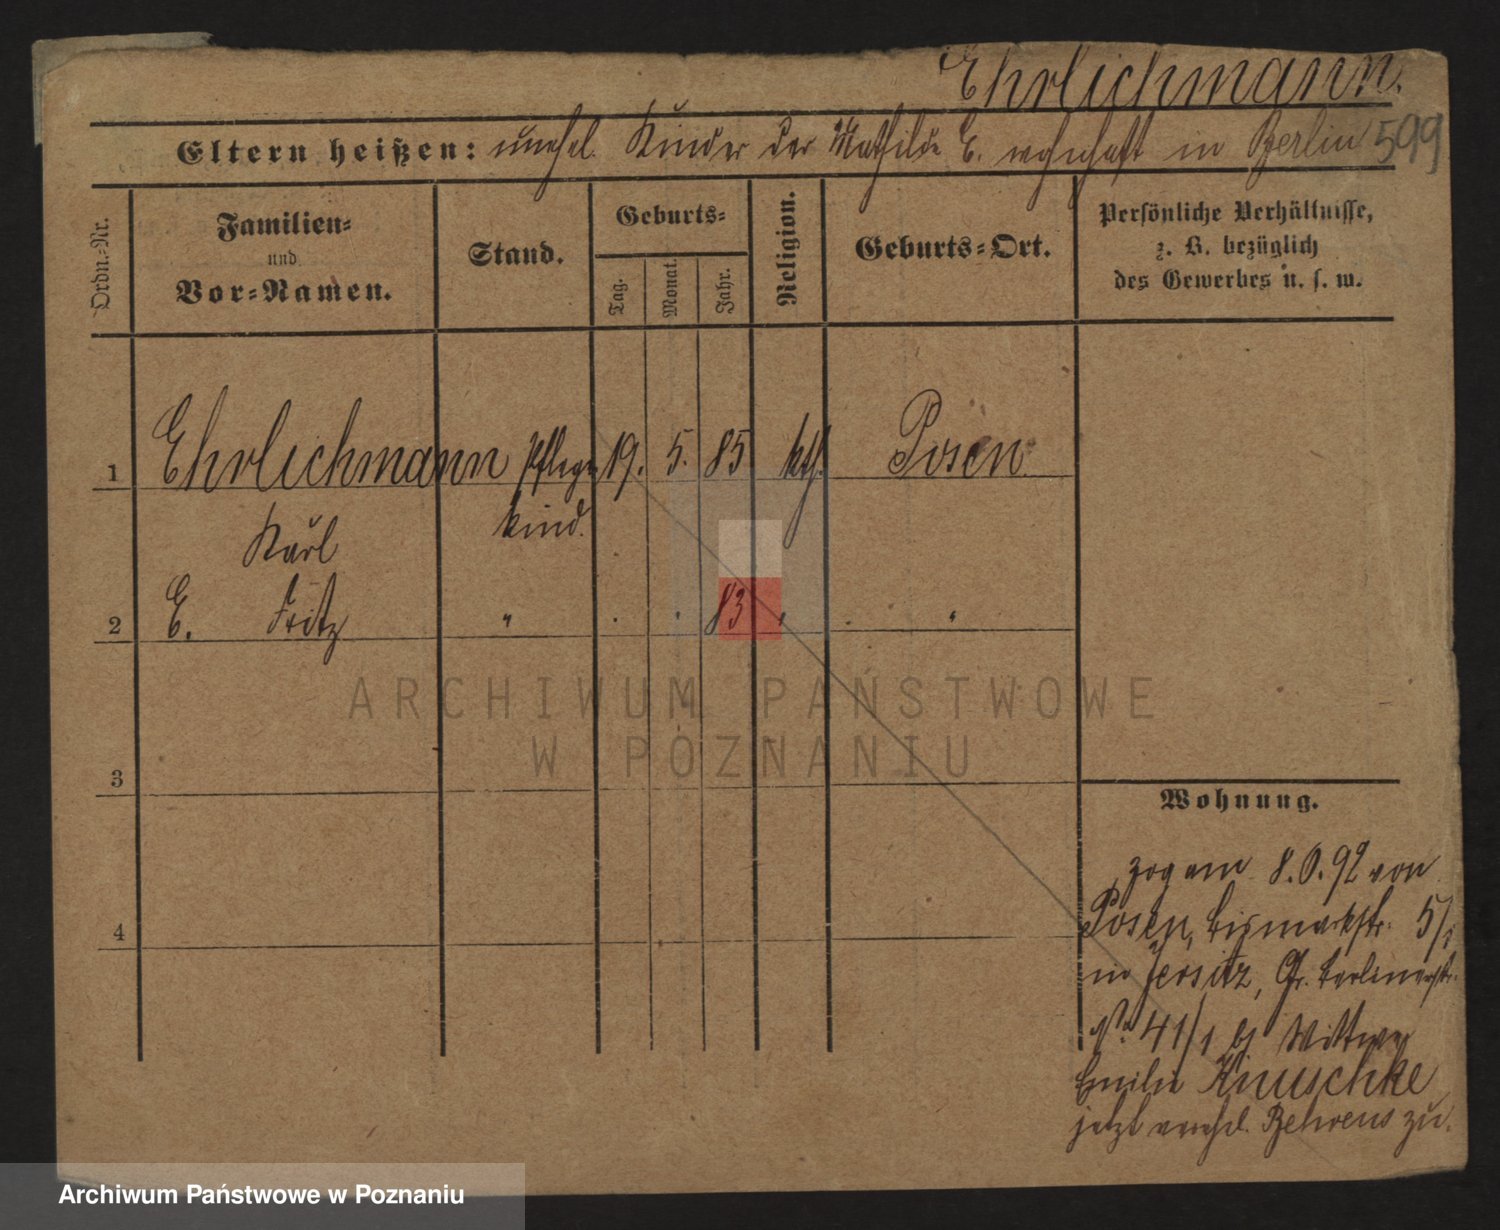 Ehrlichmann.
Eltern heißen: unehel. Kinder der Mathilde E. wohnhaft in Berlin 599
Ordn.-Nr.
Familien-
und
Vor-Namen.
Stand.
Geburts-
Tag.
Monat.
Jahr.
Religion.
Geburts-Ort.
Persönliche Verhältnisse,
z. B. bezüglich
des Gewerbes u. s. w.
1 Ehrlichmann Pflege 19. 5. 85 kth. Posen
kind.
Karl
2 E. Fritz " . . 83 " . "
3
4
ARCHIWUM PAŃSTWOWE
W POZNANIU
Wohnung.
zog am 8.6.92 von
Posen, Bismarkstr. 5/1
in Jersitz, Gr. Berlinerstr.
No 41/1 bei Wittwe
Emilie Knuschke
jetzt verehel. Behrens zu.
Archiwum Państwowe w Poznaniu